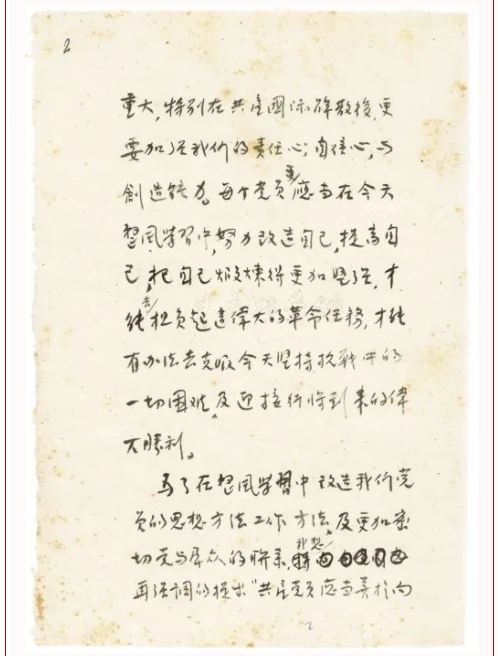 2
重大,特别在共產國际解散後,更
要加强我们的责任心,自信心,与
創造能力。每个党员都應当在今天
整風学習中,努力改造自己,提高自
己,把自己煅煉得更加坚强,才
能担负起这偉大的革命任務,才能
有办法去克服今天坚持抗战中的
一切困难,及迎接行将到来的偉
大勝利。
為了在整風学習中改造我们党
员的思想方法工作方法,及更加密
切党与群众的联系,我想
再强调的提出“共產党员應当善於向
2